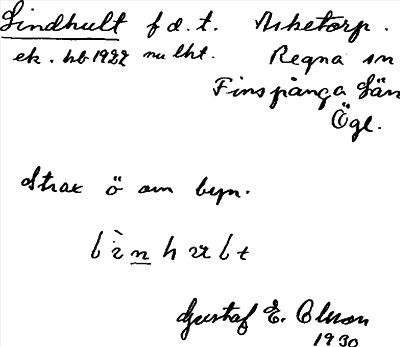 Lindhult f d. t. Asketorp.
ek. hb 1922 nu lht. Regna sn
Finspånga län
Ögl.
Strax ö om byn.
Gustaf E. Olsson
1930